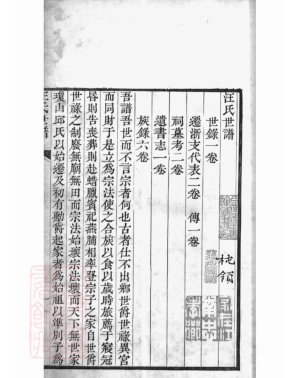 汪氏世譜
世錄一卷
遷浙支代表二卷 傳一卷
祠墓考二卷
遺書志一卷
族錄六卷
吾譜吾世而不言宗者何也古者仕不出鄉世爵世祿異宮
而同財于是立為宗法使之合族以食以歲時旅薦于寢冠
昏則告喪葬則赴蜡臘賓祀燕脯相率登宗子之家自世爵
世祿之制廢無廟無田而宗法始壞宗法壞而天下無世家
瓊山邱氏以始遷及初有勳爵起家者為始祖以準別子為